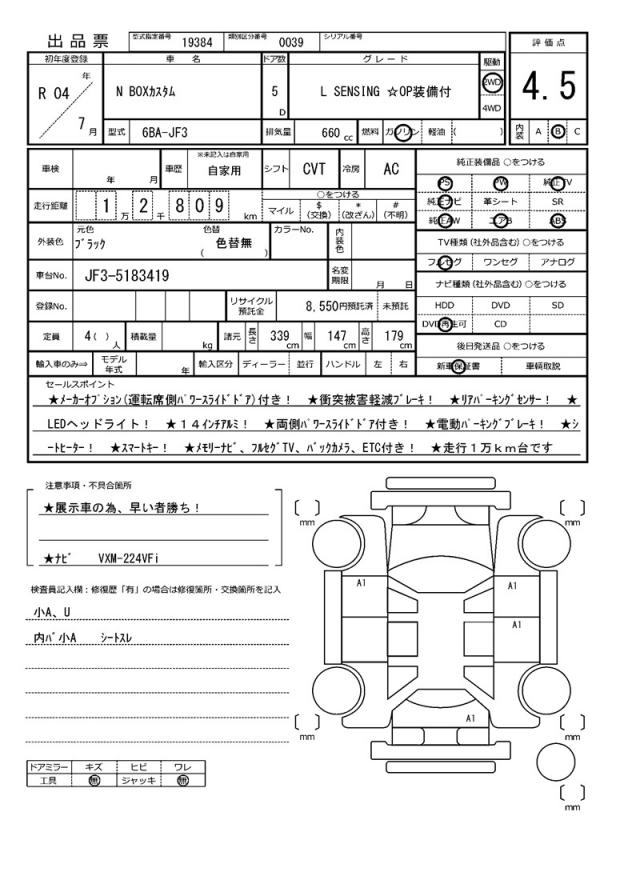 出品票
型式指定番号 19384 類別区分番号 0039 シリアル番号
評価点
4.5
内装 A B C
初年度登録 車名 ドア数 グレード 駆動
R 04 年 7 月
N BOXカスタム 5 D L SENSING ☆OP装備付 2WD 4WD
型式 6BA-JF3 排気量 660 cc 燃料 ガソリン 軽油 ( )
車検 年 月 車歴 ※未記入は自家用 自家用 シフト CVT 冷房 AC
走行距離 1万2千809 km
○をつける
マイル $(交換) *(改ざん) #(不明)
外装色 元色 ブラック 色替 色替無 ( ) カラーNo. 内装色
車台No. JF3-5183419 名変期限 月 日
登録No. リサイクル預託金 8,550円預託済 未預託
定員 4( )人 積載量 kg 諸元 長さ 339cm 幅 147cm 高さ 179cm
輸入車のみ⇒ モデル年式 年 輸入区分 ディーラー 並行 ハンドル 左 右
純正装備品 ○をつける
PS PW 純正TV
純正ナビ 革シート SR
純正AW エアB ABS
TV種類 (社外品含む) ○をつける
フルセグ ワンセグ アナログ
ナビ種類 (社外品含む) ○をつける
HDD DVD SD
DVD再生可 CD
後日発送品 ○をつける
新車保証書 車輌取説
セールスポイント
★メーカーオプション(運転席側パワースライドドア)付き! ★衝突被害軽減ブレーキ! ★リアパーキングセンサー! ★
LEDヘッドライト! ★14インチアルミ! ★両側パワースライドドア付き! ★電動パーキングブレーキ! ★シ
ートヒーター! ★スマートキー! ★メモリーナビ、フルセグTV、バックカメラ、ETC付き! ★走行1万km台です
注意事項・不具合箇所
★展示車の為、早い者勝ち!
★ナビ VXM-224VFi
検査員記入欄:修復歴「有」の場合は修復箇所・交換箇所を記入
小A、U
内バ小A シートスレ
ドアミラー キズ ヒビ ワレ
工具 無 ジャッキ 無
[ ] mm
[ ] mm
A1
A1
A1
A1
[ ] mm
[ ] mm
[ ] mm